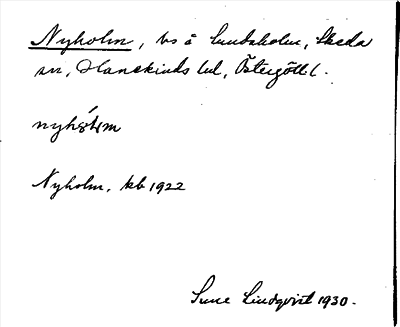 Nyholm, bs å Lundsholm, Skeda
sn, Hanekinds hd, Östergötl.
nyhólm
Nyholm, kb 1922
Sune Lindqvist 1930.